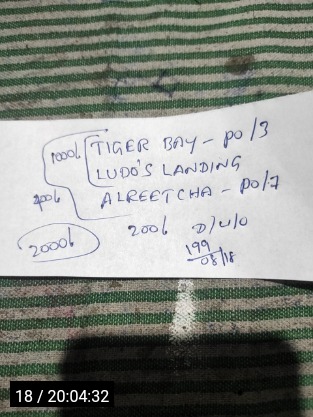 1000b TIGER BAY - PO/3
LUDO'S LANDING
400b ALREETCHA - PO/7
2000b 200b D/W/O
199
08/18
18 / 20:04:32